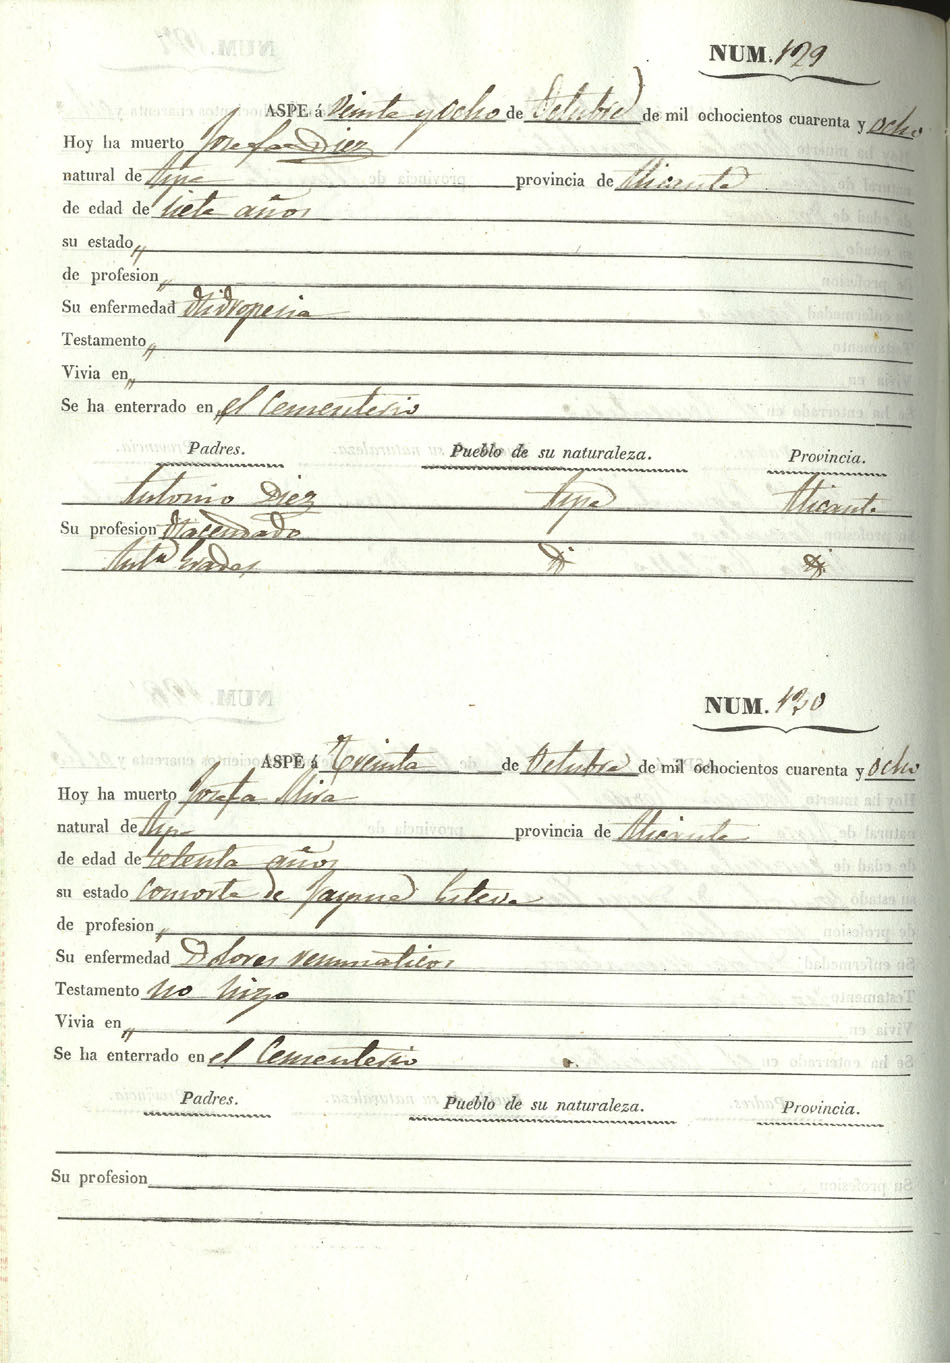 NUM. 129
ASPE á Veinte y ocho de Octubre de mil ochocientos cuarenta y ocho
Hoy ha muerto Josefa Diez
natural de Aspe provincia de Alicante
de edad de siete años
su estado "
de profesion "
Su enfermedad Hidropesia
Testamento "
Vivia en "
Se ha enterrado en el Cementerio
Padres. Pueblo de su naturaleza. Provincia.
Antonio Diez Aspe Alicante
Su profesion Hacendado
Antª
NUM. 130
ASPE á Treinta de Octubre de mil ochocientos cuarenta y ocho
Hoy ha muerto Josefa Mira
natural de Aspe provincia de Alicante
de edad de setenta años
su estado consorte de
de profesion "
Su enfermedad Dolores reumaticos
Testamento no hizo
Vivia en "
Se ha enterrado en el Cementerio
Padres. Pueblo de su naturaleza. Provincia.
Su profesion